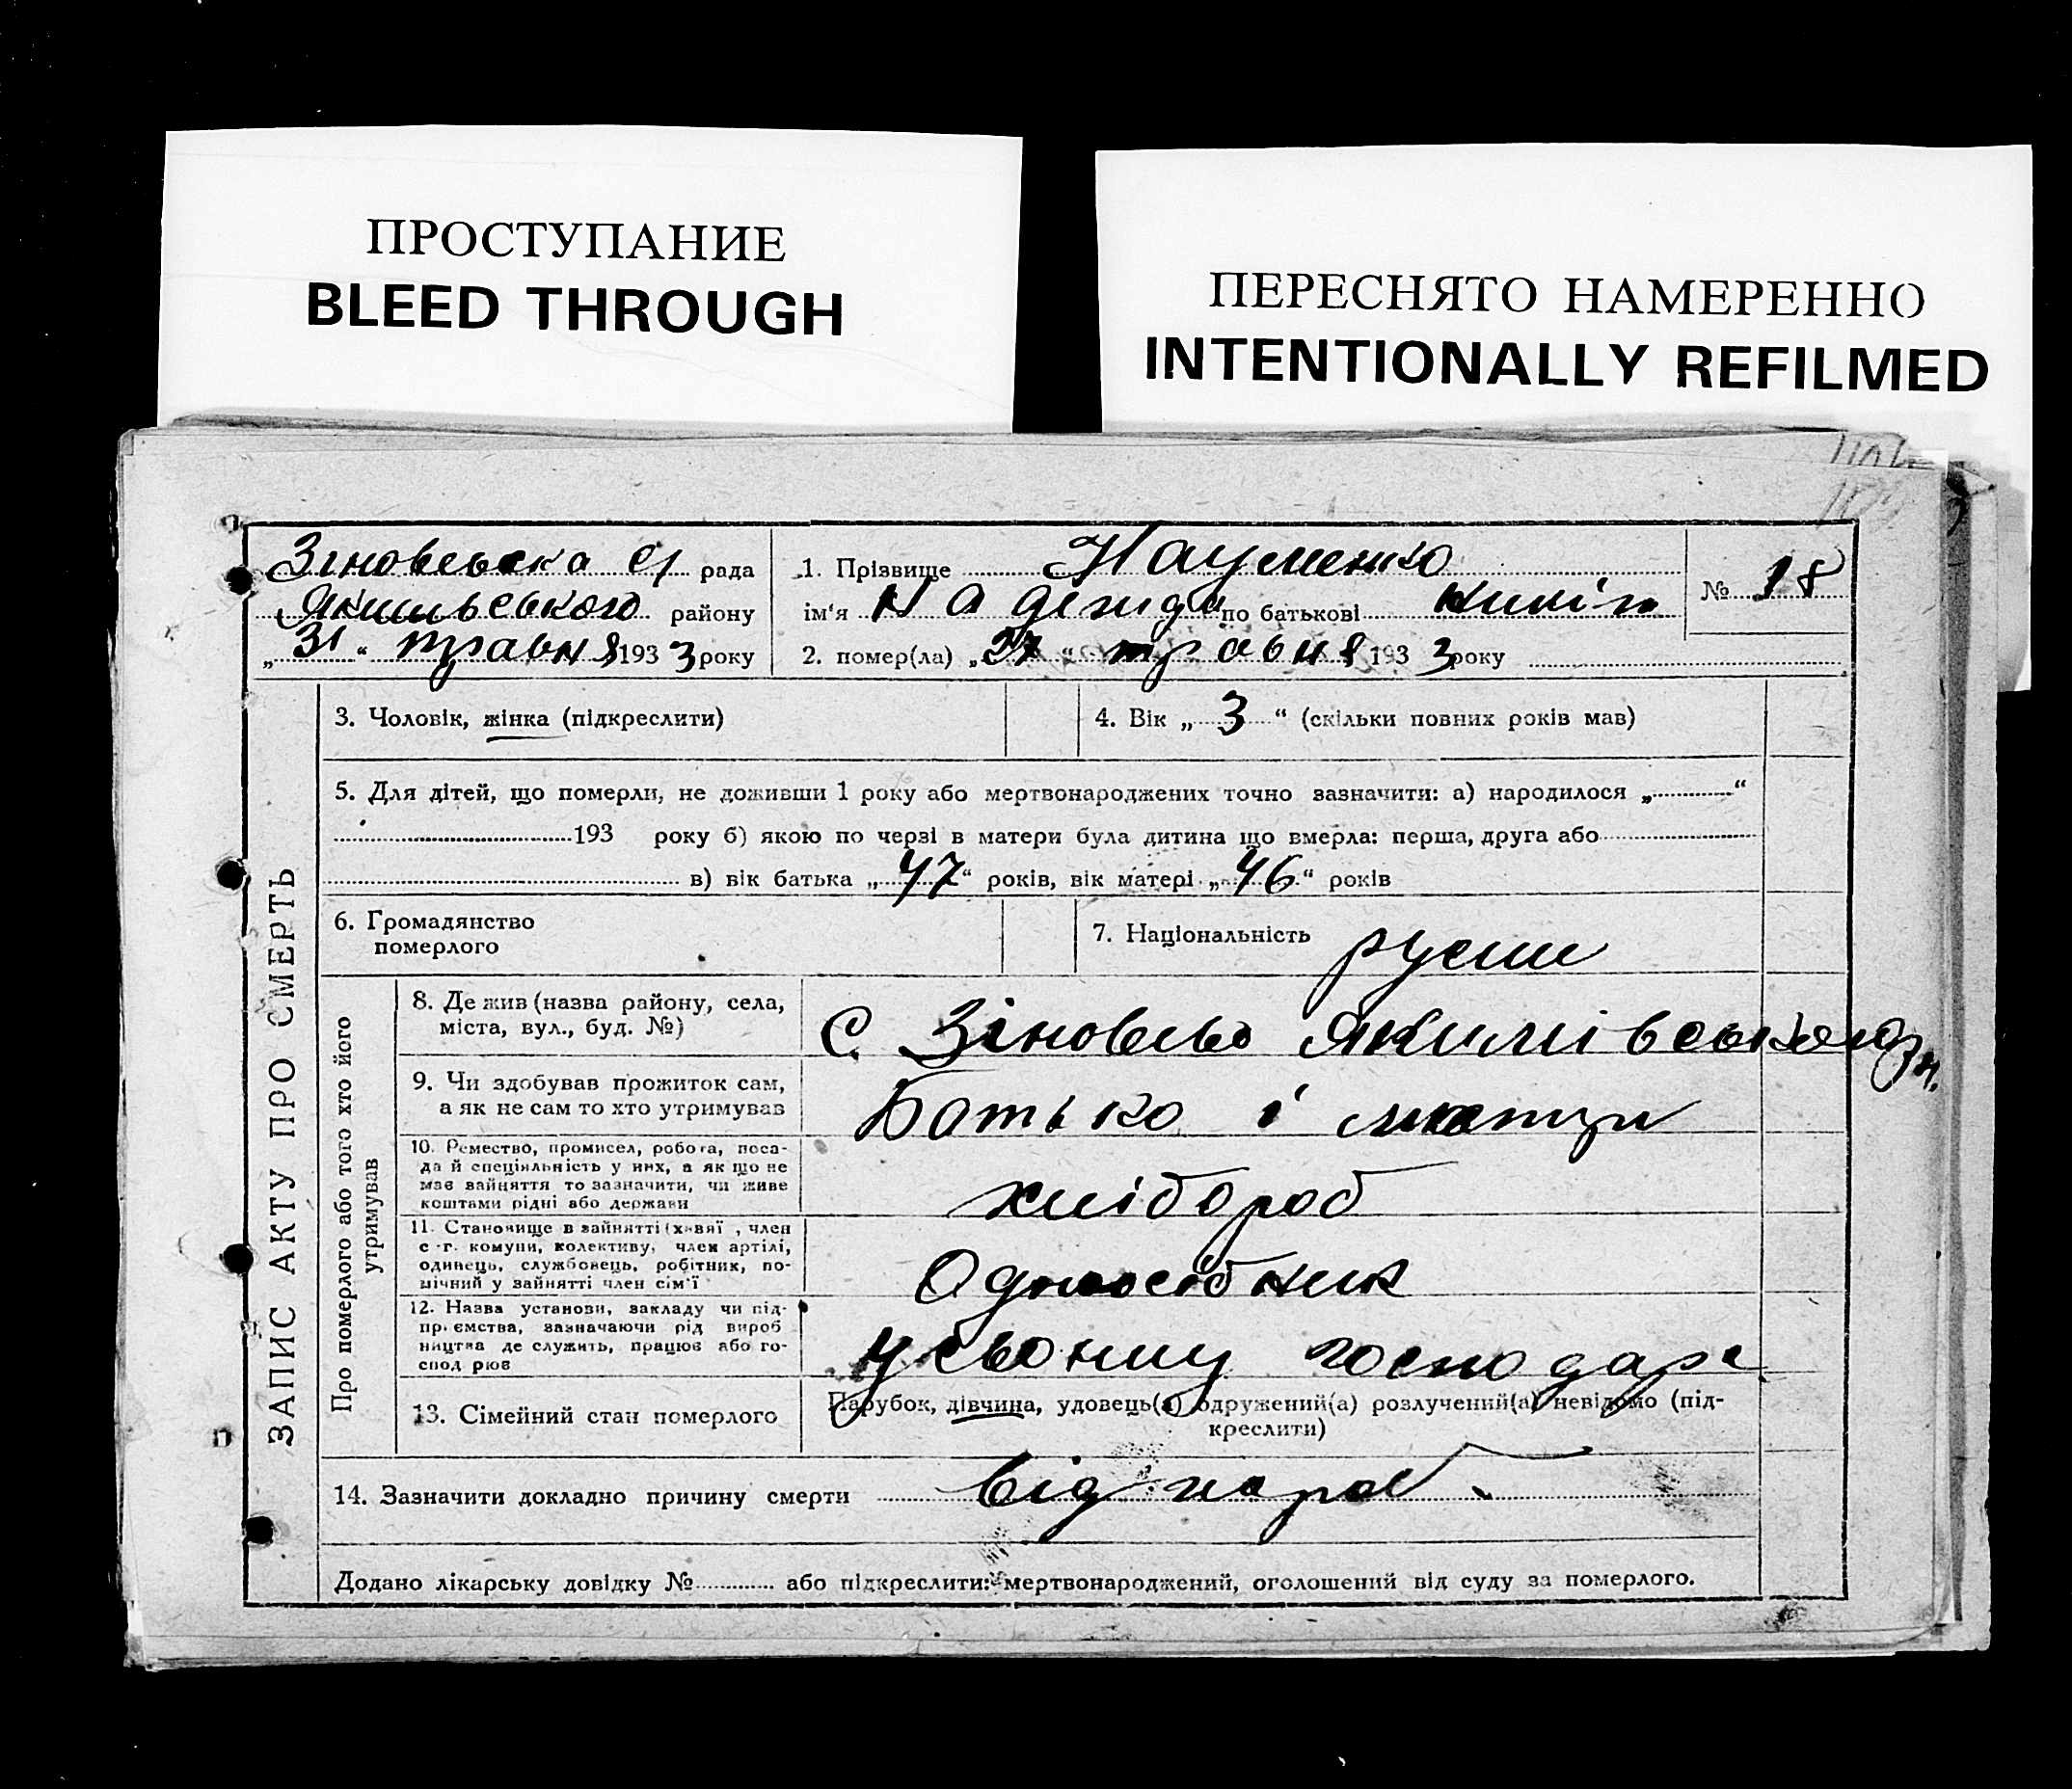 ПРОСТУПАНИЕ
BLEED THROUGH
ПЕРЕСНЯТО НАМЕРЕННО
INTENTIONALLY REFILMED
Зіновельська с/ рада
району
„31“ травня 1933 року
1. Прізвище Науменко
ім‘я Надежда по батькові
2. помер(ла) „27“ травня 1933 року
№ 18
ЗАПИС АКТУ ПРО СМЕРТЬ
3. Чоловік, жінка (підкреслити)
4. Вік „3“ (скільки повних років мав)
5. Для дітей, що померли, не доживши 1 року або мертвонароджених точно зазначити: а) народилося „ “
193 року б) якою по черзі в матери була дитина що вмерла: перша, друга або
в) вік батька „47“ років, вік матері „46“ років
6. Громадянство
померлого
7. Національність
Про померлого або того хто його
утримував
8. Де жив (назва району, села,
міста, вул., буд. №)
С. Якимівського
9. Чи здобував прожиток сам,
а як не сам то хто утримував
Батько і
10. Ремество, промисел, робота, поса-
да й спеціяльність у них, а як що не
має зайняття то зазначити, чи живе
коштами рідні або держави
хлібороб
11. Становище в зайнятті (хазяї , член
с.-г. комуни, колективу, член артілі,
одинець, службовець, робітник, по-
мічний у зайнятті член сім‘ї
Одноосібник
12. Назва установи, закладу чи під-
приємства, зазначаючи рід вироб
ництва де служить, працює або го-
спод рює
У своєму господар
13. Сімейний стан померлого
Парубок, дівчина, удовець(а) одружений(а) розлучений(а) невідомо (під-
креслити)
14. Зазначити докладно причину смерти від
Додано лікарську довідку № або підкреслити: мертвонароджений, оголошений від суду за померлого.